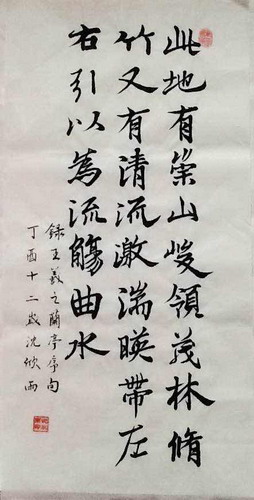 此地有崇山峻領茂林脩
竹又有清流激湍暎帶左
右引以為流觴曲水
録王羲之蘭亭序句
丁酉十二歲沈欣雨